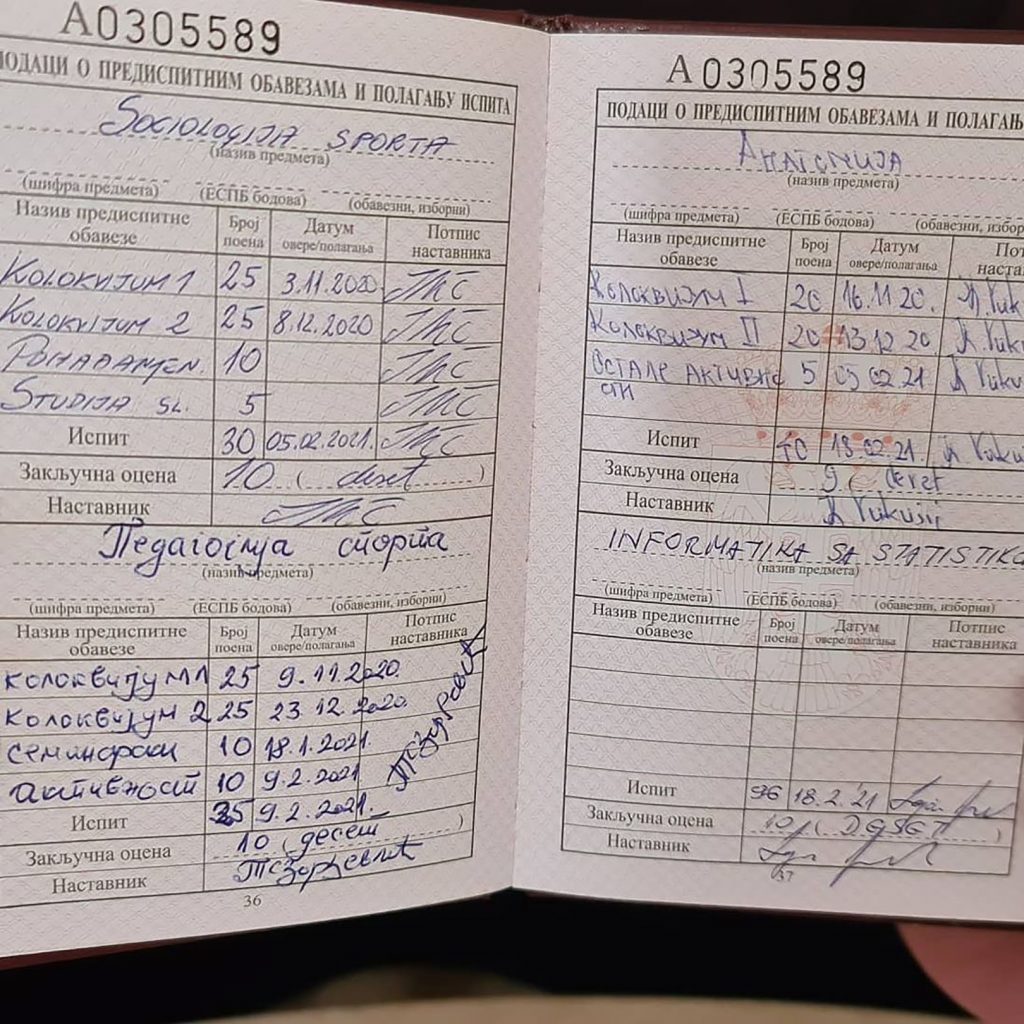 А0305589
ПОДАЦИ О ПРЕДИСПИТНИМ ОБАВЕЗАМА И ПОЛАГАЊУ ИСПИТА
SOCIOLOGIJA SPORTA
(назив предмета)
(шифра предмета) (ЕСПБ бодова) (обавезни, изборни)
Назив предиспитне обавезе Број поена Датум овере/полагања Потпис наставника
KOLOKVIJUM 1 25 3.11.2020
KOLOKVIJUM 2 25 8.12.2020
10
STUDIJA SL. 5
Испит 30 05.02.2021.
Закључна оцена 10 ( deset )
Наставник
Педагогија спорта
(назив предмета)
(шифра предмета) (ЕСПБ бодова) (обавезни, изборни)
Назив предиспитне обавезе Број поена Датум овере/полагања Потпис наставника
колоквијум 1 25 9.11.2020.
колоквијум 2 25 23.12.2020.
семинарски 10 18.1.2021.
активност 10 9.2.2021
Испит 25 9.2.2021.
Закључна оцена 10 ( десет )
Наставник
36
А0305589
ПОДАЦИ О ПРЕДИСПИТНИМ ОБАВЕЗАМА И ПОЛАГАЊ
Анатомија
(назив предмета)
(шифра предмета) (ЕСПБ бодова) (обавезни, избор
Назив предиспитне обавезе Број поена Датум овере/полагања Пот наста
Колоквизум I 20 16.11 20.
Колоквизум II 20 13 12 20.
ОСТАЛЕ АКТИВНО 5 03 02.21
СТИ
Испит 40 18.02.21.
Закључна оцена 9 ( devet
Наставник
INFORMATIKA SA STATISTIKO
(назив предмета)
(шифра предмета) (ЕСПБ бодова) (обавезни, изборни)
Назив предиспитне обавезе Број поена Датум овере/полагања Потпис наставника
Испит 96 18.2.21
Закључна оцена 10 ( DESET )
Наставник
37